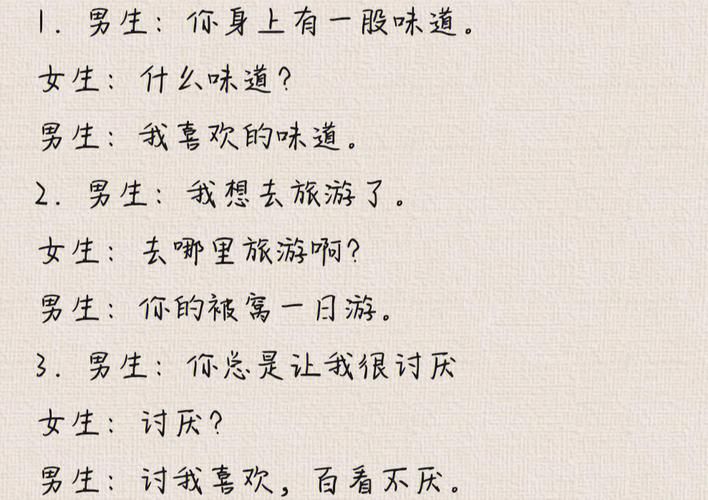 1. 男生：你身上有一股味道。
女生：什么味道？
男生：我喜欢的味道。
2. 男生：我想去旅游了。
女生：去哪里旅游啊？
男生：你的被窝一日游。
3. 男生：你总是让我很讨厌
女生：讨厌？
男生：讨我喜欢，百看不厌。